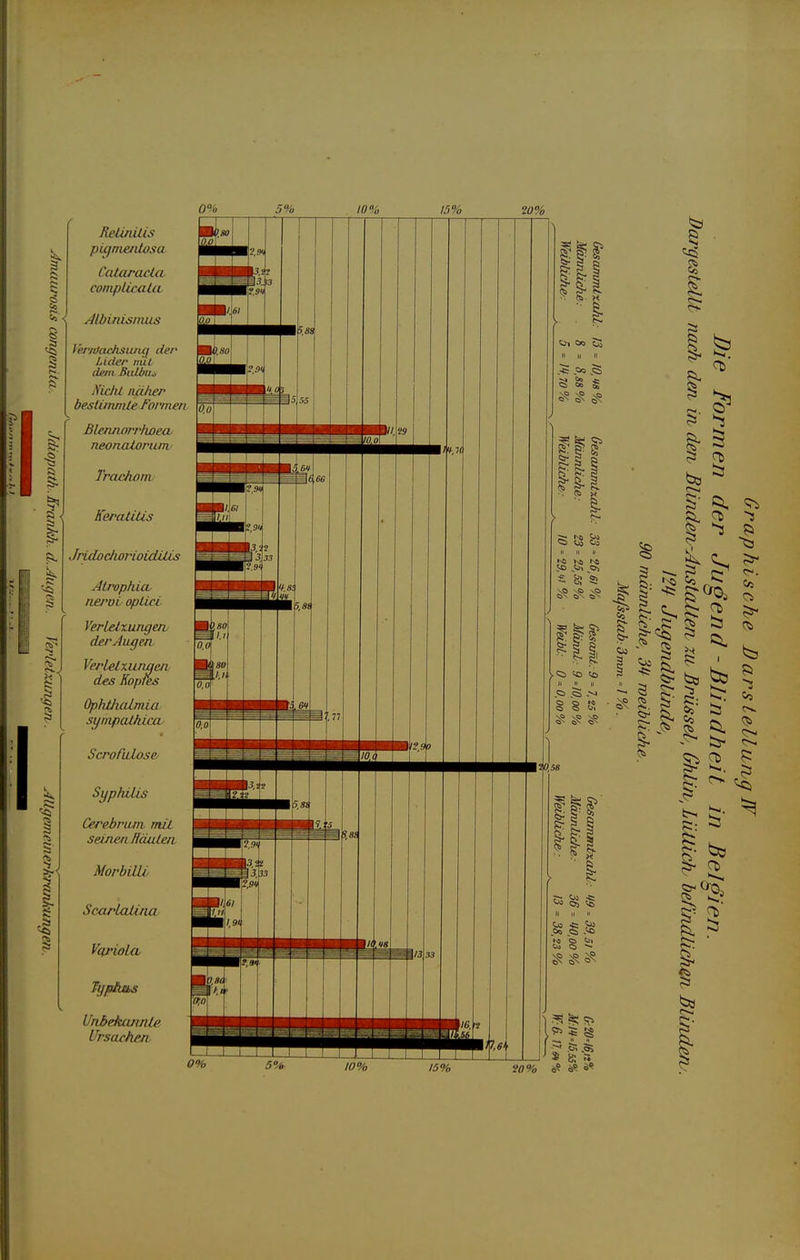 Graphische Darstellung IV
Die Formen der Jugend-Blindheit in Belgien.
Dargestellt nach den in den Blinden-Anstalten zu Brüssel, Ghlin, Lüttich befindlichen Blinden.
124 Jugendblinde,
90 männliche, 34 weibliche.
Mafsstab: 3mm = 1%.
0% 5% 10% 15% 20%
Amaurosis congenita.
Retinitis pigmentosa
0,80
0,0
2,94
Cataracta complicata
3,22
3,33
2,94
Albinismus
1,61
0,0
5,88
Verwachsung der Lider mit dem Bulbus
0,80
0,0
2,94
Nicht näher bestimmte Formen
4,03
5,55
0,0
Gesammtzahl: 13 = 10,48 %
Männliche: 8 = 8,88 %
Weibliche: 5 = 14,70 %
Idiopath. Krankh. d. Augen.
Blennorrhoea neonatorum
11,29
10,0
14,70
Trachom
5,64
6,66
2,94
Keratitis
1,61
1,11
2,94
Iridochorioiditis
3,22
3,33
2,94
Atrophia nervi optici
4,83
4,44
5,88
Gesammtzahl: 33 = 26,61 %
Männliche: 23 = 25,55 %
Weibliche: 10 = 29,41 %
Verletzungen.
Verletzungen der Augen
0,80
1,11
0,0
Verletzungen des Kopfes
0,80
1,11
0,0
Ophthalmia sympathica
5,64
7,77
0,0
Gesamt: 9 = 7,25 %
Männl: 9 = 10,00 %
Weibl: 0 = 0,00 %
Allgemeinerkrankungen.
Scrofulose
12,90
10,0
20,58
Syphilis
3,22
2,22
5,88
Cerebrum mit seinen Häuten
7,25
8,88
2,94
Morbilli
3,22
3,33
2,94
Scarlatina
1,61
1,11
1,94
Variola
10,48
13,33
2,94
Typhus
0,80
1,11
0,0
Gesammtzahl: 49 = 39,51 %
Männliche: 36 = 40,00 %
Weibliche: 13 = 38,23 %
Unbekannte Ursachen
16,12
15,55
17,64
G: 20 = 16,12 %
M: 14 = 15,55 %
W: 6 = 17,64 %
0% 5% 10% 15% 20%